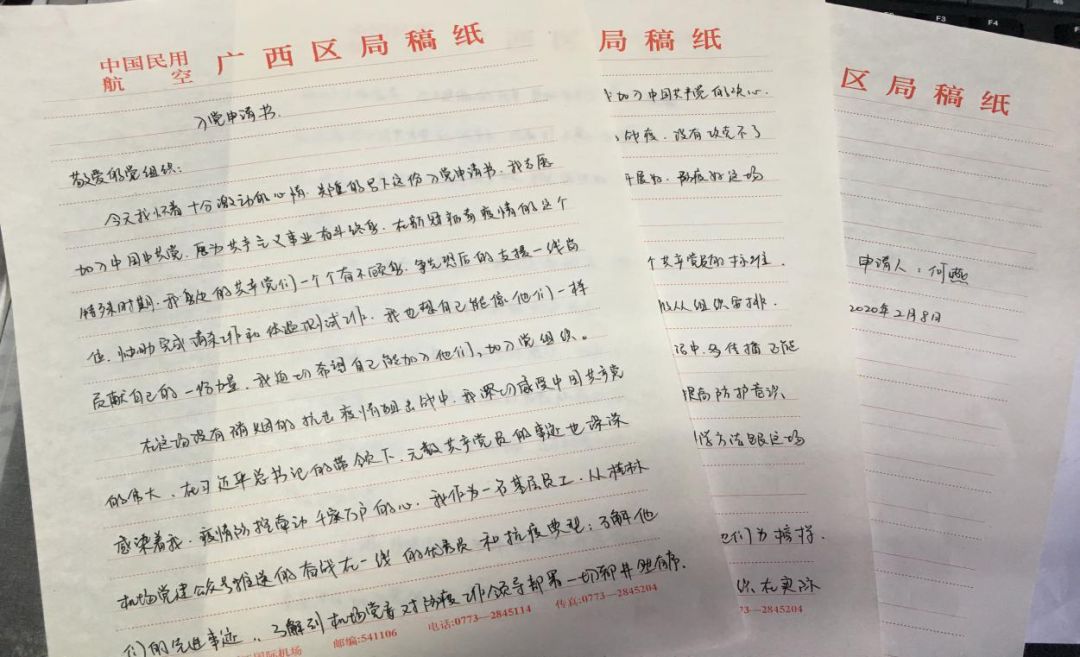 中国民用
航空
广西区局稿纸
入党申请书.
敬爱的党组织:
今天我怀着十分激动的心情,郑重的写下这份入党申请书.我志愿
加入中国共产党,愿为共产主义事业奋斗终身.在新冠肺炎疫情的这个
特殊时期.我身边的共产党们一个个奋不顾身.争先恐后的支援一线岗
位.协助完成消杀工作和体温测试工作.我也想自己能像他们一样
贡献自己的一份力量.我迫切希望自己能加入他们,加入党组织。
在这场没有硝烟的抗击疫情阻击战中,我深切感受中国共产党
的伟大.在习近平总书记的带领下,无数共产党员的事迹也深深
感染着我.疫情防控牵动千家万户的心.我作为一名基层员工.从桂林
机场党建公众号推送的奋战在一线的优秀员和抗疫典型;了解他
们的先进事迹,了解到机场党委对防疫工作领导部署一切都井然有序.
国际机场 邮编:541106 电话:0773—2845114 传真:0773—2845204
局稿纸
加入中国共产党的决心.
没有攻克不了
个共产党员的标准.
从组织安排.
提高防护意识
们为榜样.
在实际
773—2845204
区局稿纸
申请人:何燕
2020年2月8日